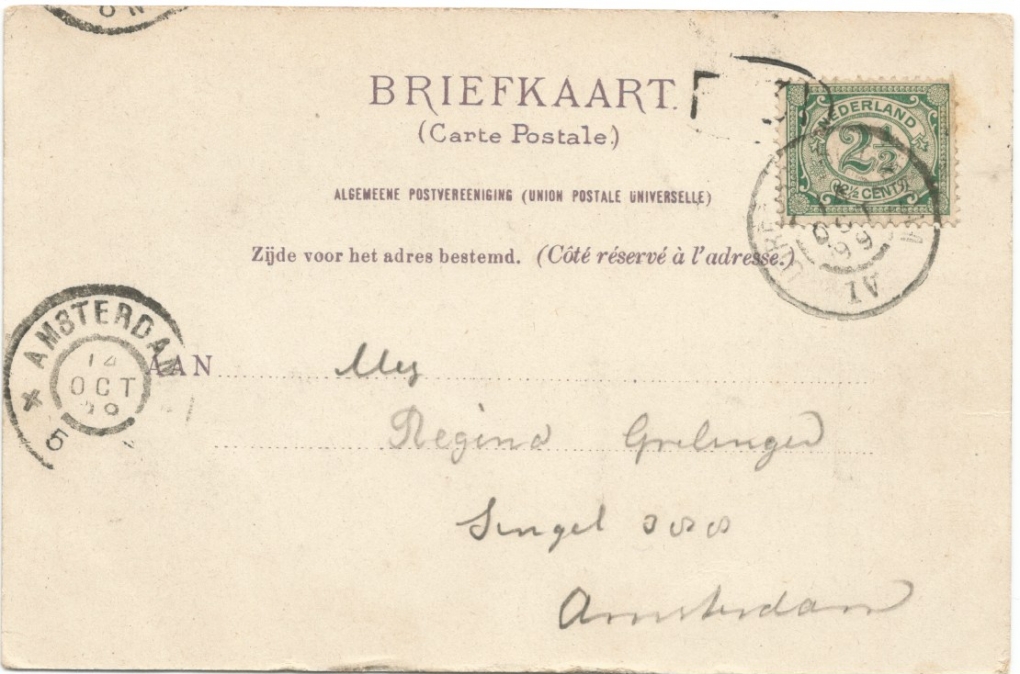 BRIEFKAART.
(Carte Postale.)
ALGEMEENE POSTVEREENIGING (UNION POSTALE UNIVERSELLE)
Zijde voor het adres bestemd. (Côté réservé à l'adresse.)
NEDERLAND
2½
(2½ CENT)
OCT
99
AMSTERDAM
OCT
5
AAN
Regina
Singel
Amsterdam